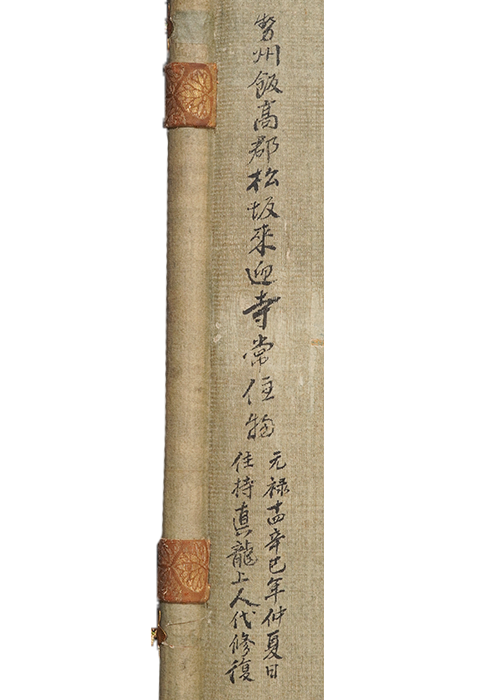 勢州飯高郡松坂来迎寺常住物
元禄十四辛巳年仲夏日
住持真龍上人代修復